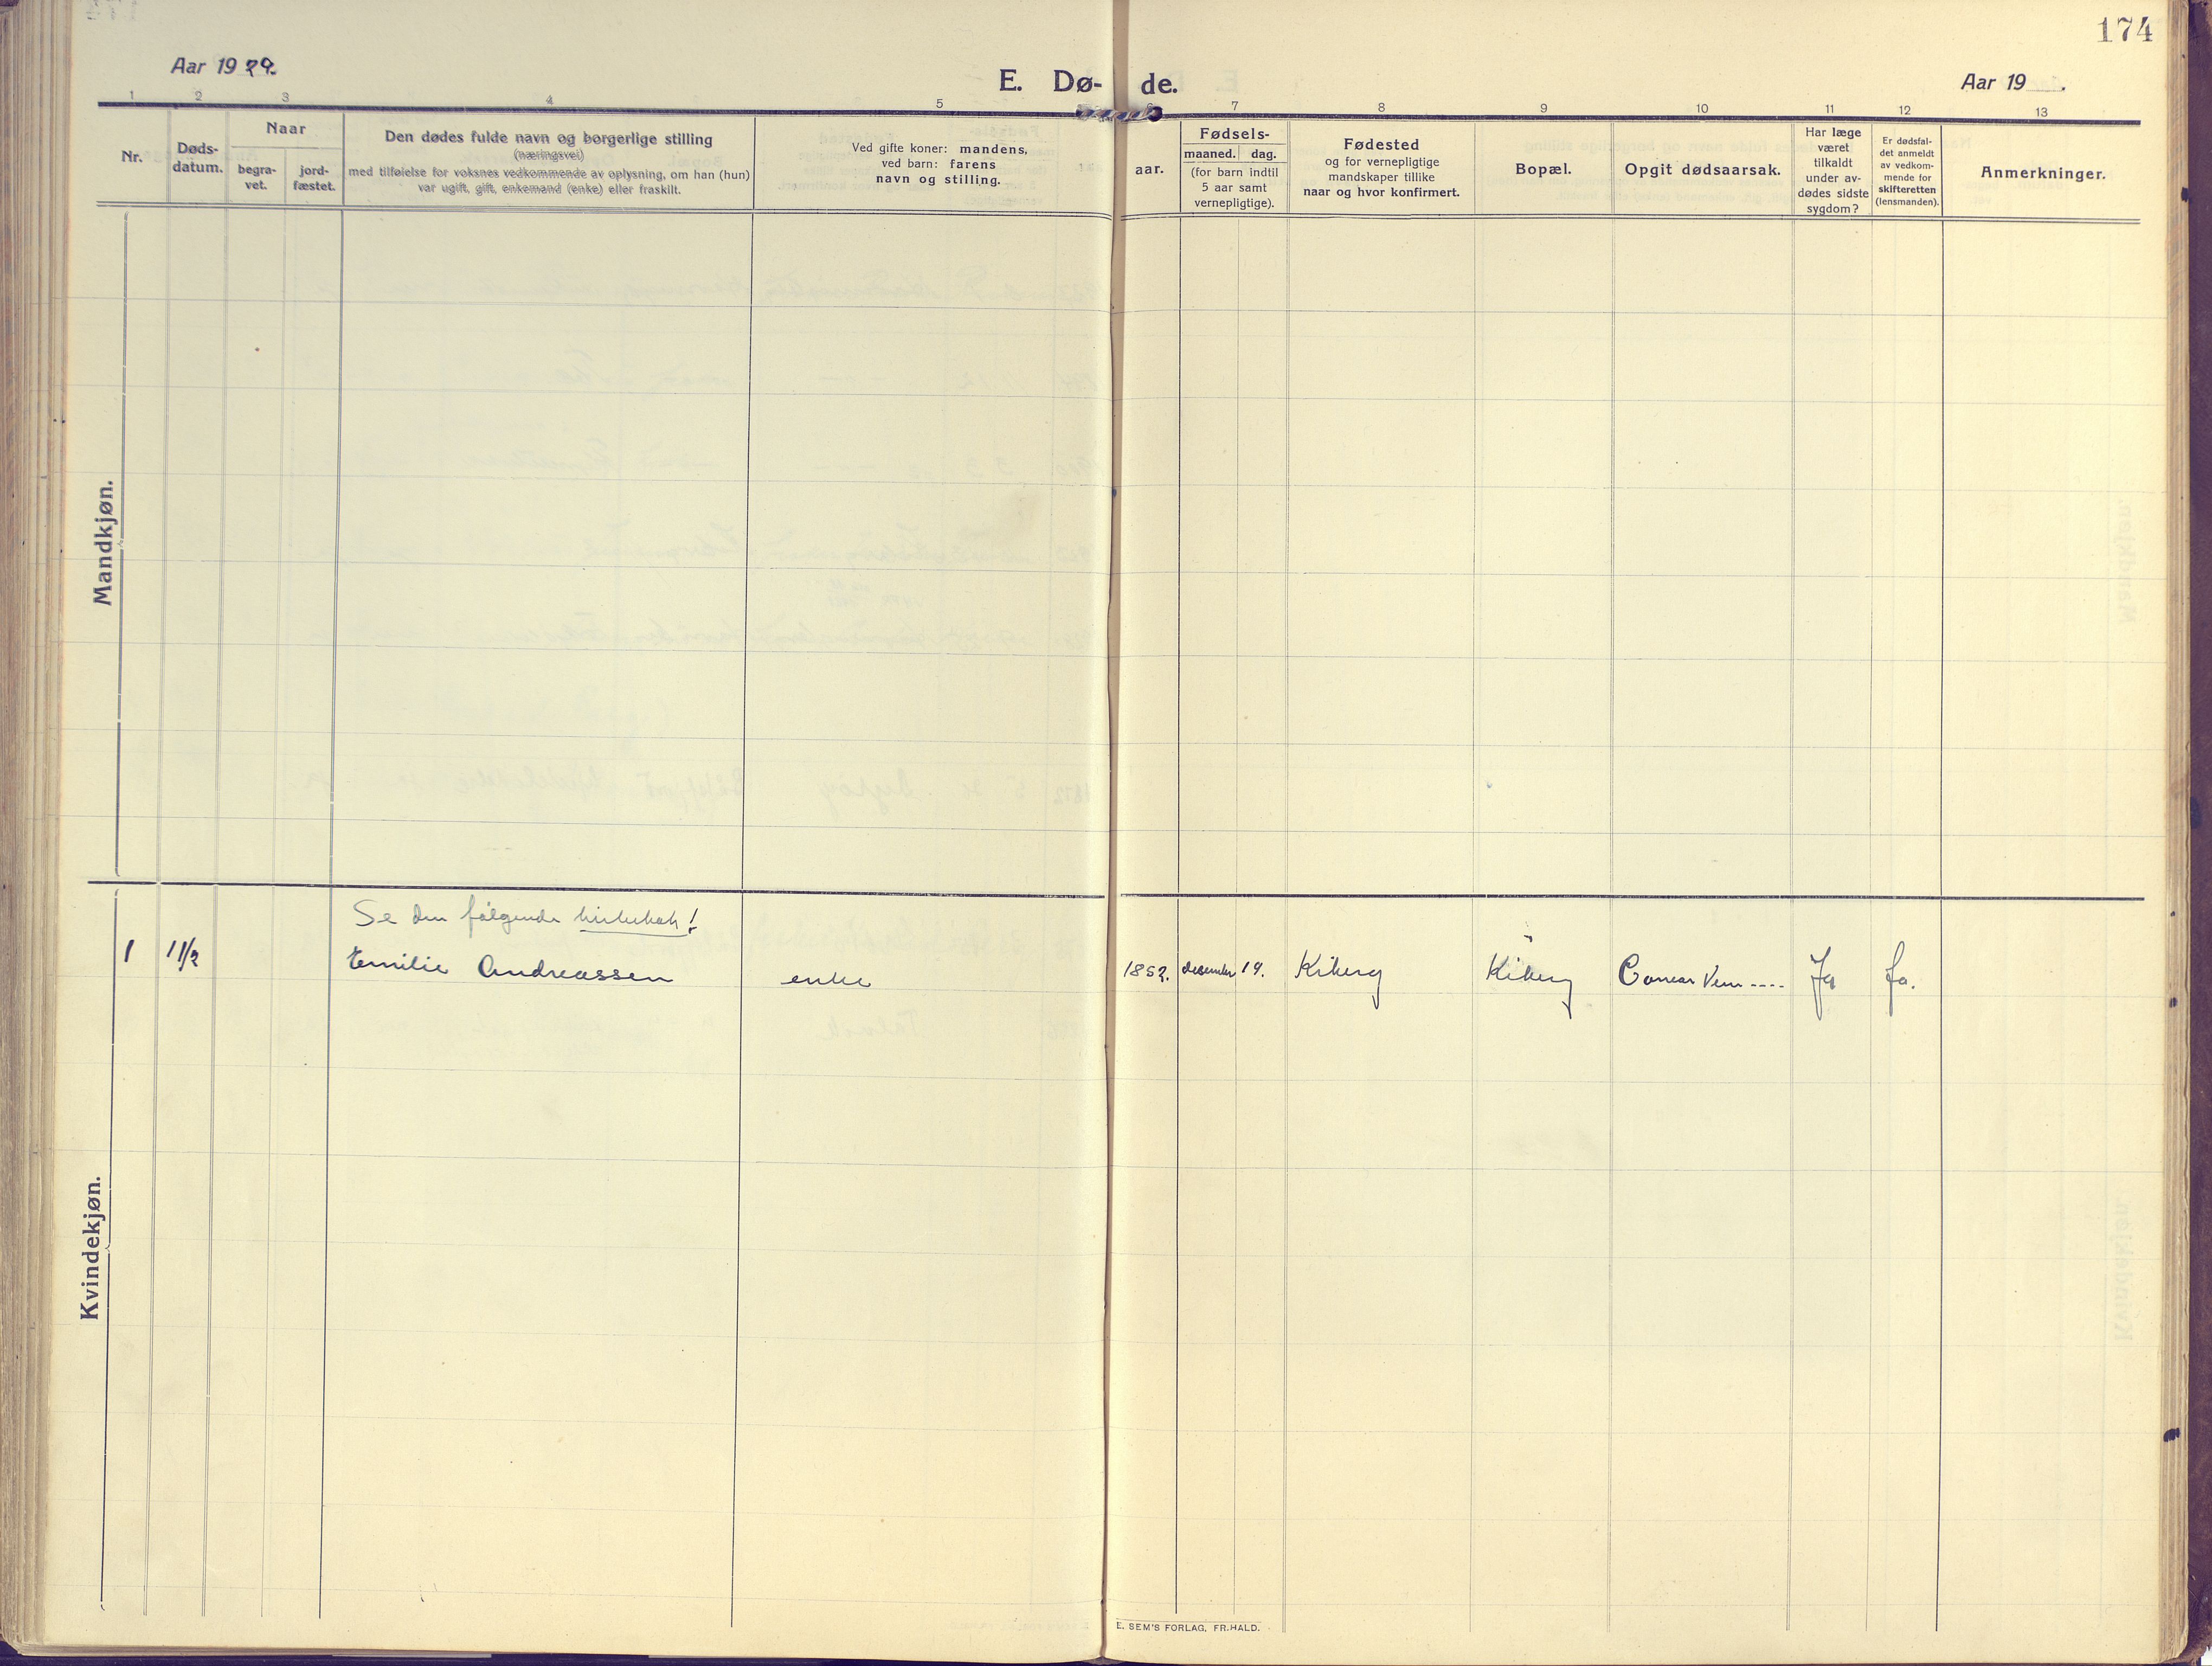 174
Aar 1929.
E. Dø- de.
Aar 19 .
1 2 3 4 5 6 7 8 9 10 11 12 13
Nr.
Døds-
datum.
Naar
begra-
vet.
jord-
fæstet.
Den dødes fulde navn og borgerlige stilling
(næringsvei)
med tilføielse for voksnes vedkommende av oplysning, om han (hun)
var ugift, gift, enkemand (enke) eller fraskilt.
Ved gifte koner: mandens,
ved barn: farens
navn og stilling.
aar.
Fødsels-
maaned. dag.
(for barn indtil
5 aar samt
vernepligtige).
Fødested
og for vernepligtige
mandskaper tillike
naar og hvor konfirmert.
Bopæl.
Opgit dødsaarsak.
Har læge
været
tilkaldt
under av-
dødes sidste
sygdom?
Er dødsfal-
det anmeldt
av vedkom-
mende for
skifteretten
(lensmanden).
Anmerkninger.
Mandkjøn.
Kvindekjøn.
Se den følgende kirkebok!
1 11/2 Emilie Andreassen enke 1852. desember 19. Kiberg Kiberg Ja Ja.
E. SEM'S FORLAG, FR.HALD.